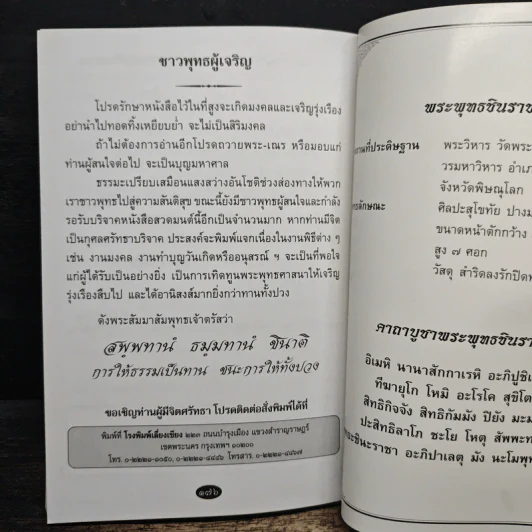 ชาวพุทธผู้เจริญ
โปรดรักษาหนังสือไว้ในที่สูงจะเกิดมงคลและเจริญรุ่งเรือง
อย่านำไปทอดทิ้งเหยียบย่ำ จะไม่เป็นสิริมงคล
ถ้าไม่ต้องการอ่านอีกโปรดถวายพระ-เณร หรือมอบแก่
ท่านผู้สนใจต่อไป จะเป็นบุญมหาศาล
ธรรมะเปรียบเสมือนแสงสว่างอันโชติช่วงส่องทางให้พวก
เราชาวพุทธไปสู่ความสันติสุข ขณะนี้ยังมีชาวพุทธผู้สนใจและกำลัง
รอรับบริจาคหนังสือสวดมนต์นี้อีกเป็นจำนวนมาก หากท่านมีจิต
เป็นกุศลศรัทธาบริจาค ประสงค์จะพิมพ์แจกเนื่องในงานพิธีต่าง ๆ
เช่น งานมงคล งานทำบุญวันเกิดหรืออนุสรณ์ ฯ จะเป็นที่พอใจ
แก่ผู้ได้รับเป็นอย่างยิ่ง เป็นการเทิดทูนพระพุทธศาสนาให้เจริญ
รุ่งเรืองสืบไป และได้อานิสงส์มากยิ่งกว่าทานทั้งปวง
ดังพระสัมมาสัมพุทธเจ้าตรัสว่า
สพฺพทานํ ธมฺมทานํ ชินาติ
การให้ธรรมเป็นทาน ชนะการให้ทั้งปวง
ขอเชิญท่านผู้มีจิตศรัทธา โปรดติดต่อสั่งพิมพ์ได้ที่
พิมพ์ที่ โรงพิมพ์เลี่ยงเชียง ๒๒๓ ถนนบำรุงเมือง แขวงสำราญราษฎร์
เขตพระนคร กรุงเทพฯ ๑๐๒๐๐
โทร. ๐-๒๒๒๑-๑๐๕๐, ๐-๒๒๒๑-๔๔๔๖ โทรสาร. ๐-๒๒๒๑-๔๔๖๗
๑๗๖
พระพุทธชินราช
สถานที่ประดิษฐาน พระวิหาร วัดพระ
วรมหาวิหาร อำเภ
จังหวัดพิษณุโลก
ศิลปะสุโขทัย ปางม
ขนาดหน้าตักกว้าง
สูง ๗ ศอก
วัสดุ สำริดลงรักปิดท
คาถาบูชาพระพุทธชินรา
อิเมหิ นานาสักกาเรหิ อะภิปูชิเ
ทีฆายุโก โหมิ อะโรโค สุขิโต
สิทธิกิจจัง สิทธิกัมมัง ปิยัง มะม
ปะสิทธิลาโภ ชะโย โหตุ สัพพะท
ชินะราชา อะภิปาเลตุ มัง นะโมพุท